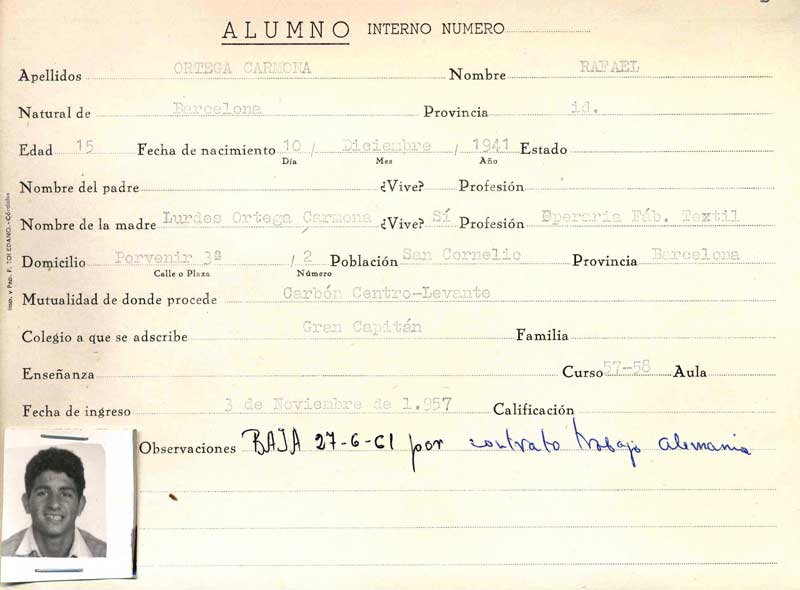 ALUMNO INTERNO NUMERO
Apellidos ORTEGA CARMONA Nombre RAFAEL
Natural de Barcelona Provincia id.
Edad 15 Fecha de nacimiento 10 / Diciembre / 1941 Estado
Día Mes Año
Nombre del padre ¿Vive? Profesión
Nombre de la madre Lurdes Ortega Carmona ¿Vive? Sí Profesión Eperaria Fáb. Textil
Domicilio Porvenir 3ª / 2 Población San Cornelio Provincia Barcelona
Calle o Plaza Número
Mutualidad de donde procede Carbón Centro-Levante
Colegio a que se adscribe Gran Capitán Familia
Enseñanza Curso 57-58 Aula
Fecha de ingreso 3 de Noviembre de 1.957 Calificación
Observaciones BAJA 27-6-61 por contrato trabajo alemania
Imp. y Pap. F. TOLEDANO.-Córdoba